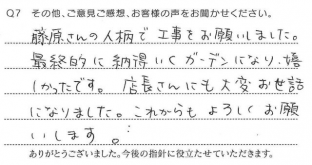 Q7 その他、ご意見ご感想、お客様の声をお聞かせください。
藤原さんの人柄で工事をお願いしました。
最終的に納得いくガーデンになり、嬉
しかったです。店長さんにも大変お世話
になりました。これからもよろしくお願
いします。
ありがとうございました。今後の指針に役立たせていただきます。